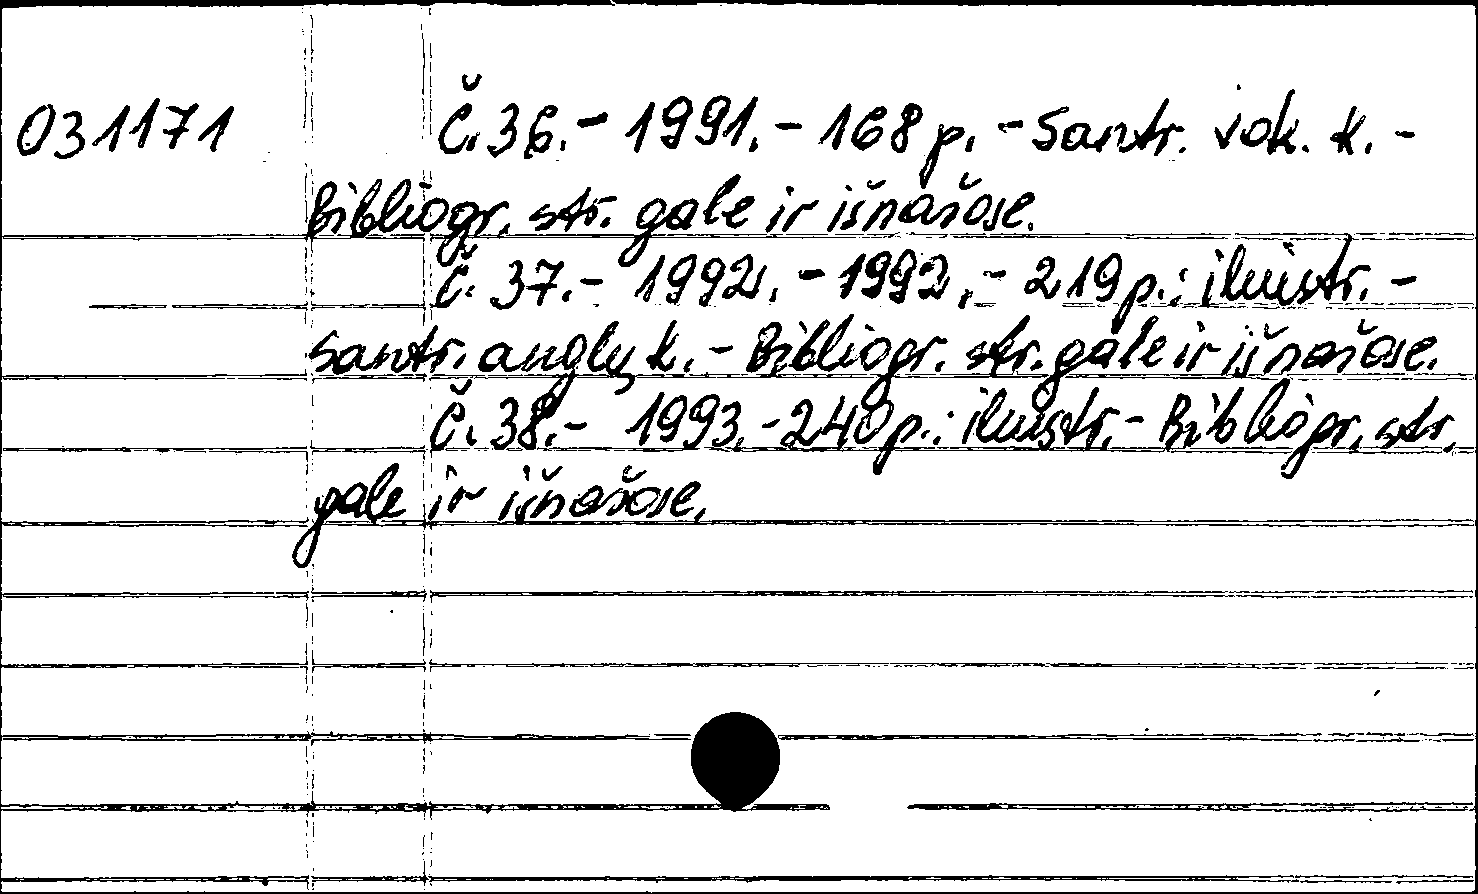 031171 Č. 36. - 1991. - 168 p. - Santr. vok. k. -
Bibliogr. str. gale ir išnašose.
Č. 37. - 1992. - 1992. - 219 p.: iliustr. -
Santr. anglų k. - Bibliogr. str. gale ir išnašose.
Č. 38. - 1993. - 240 p.: iliustr. - Bibliogr. str.
gale ir išnašose.